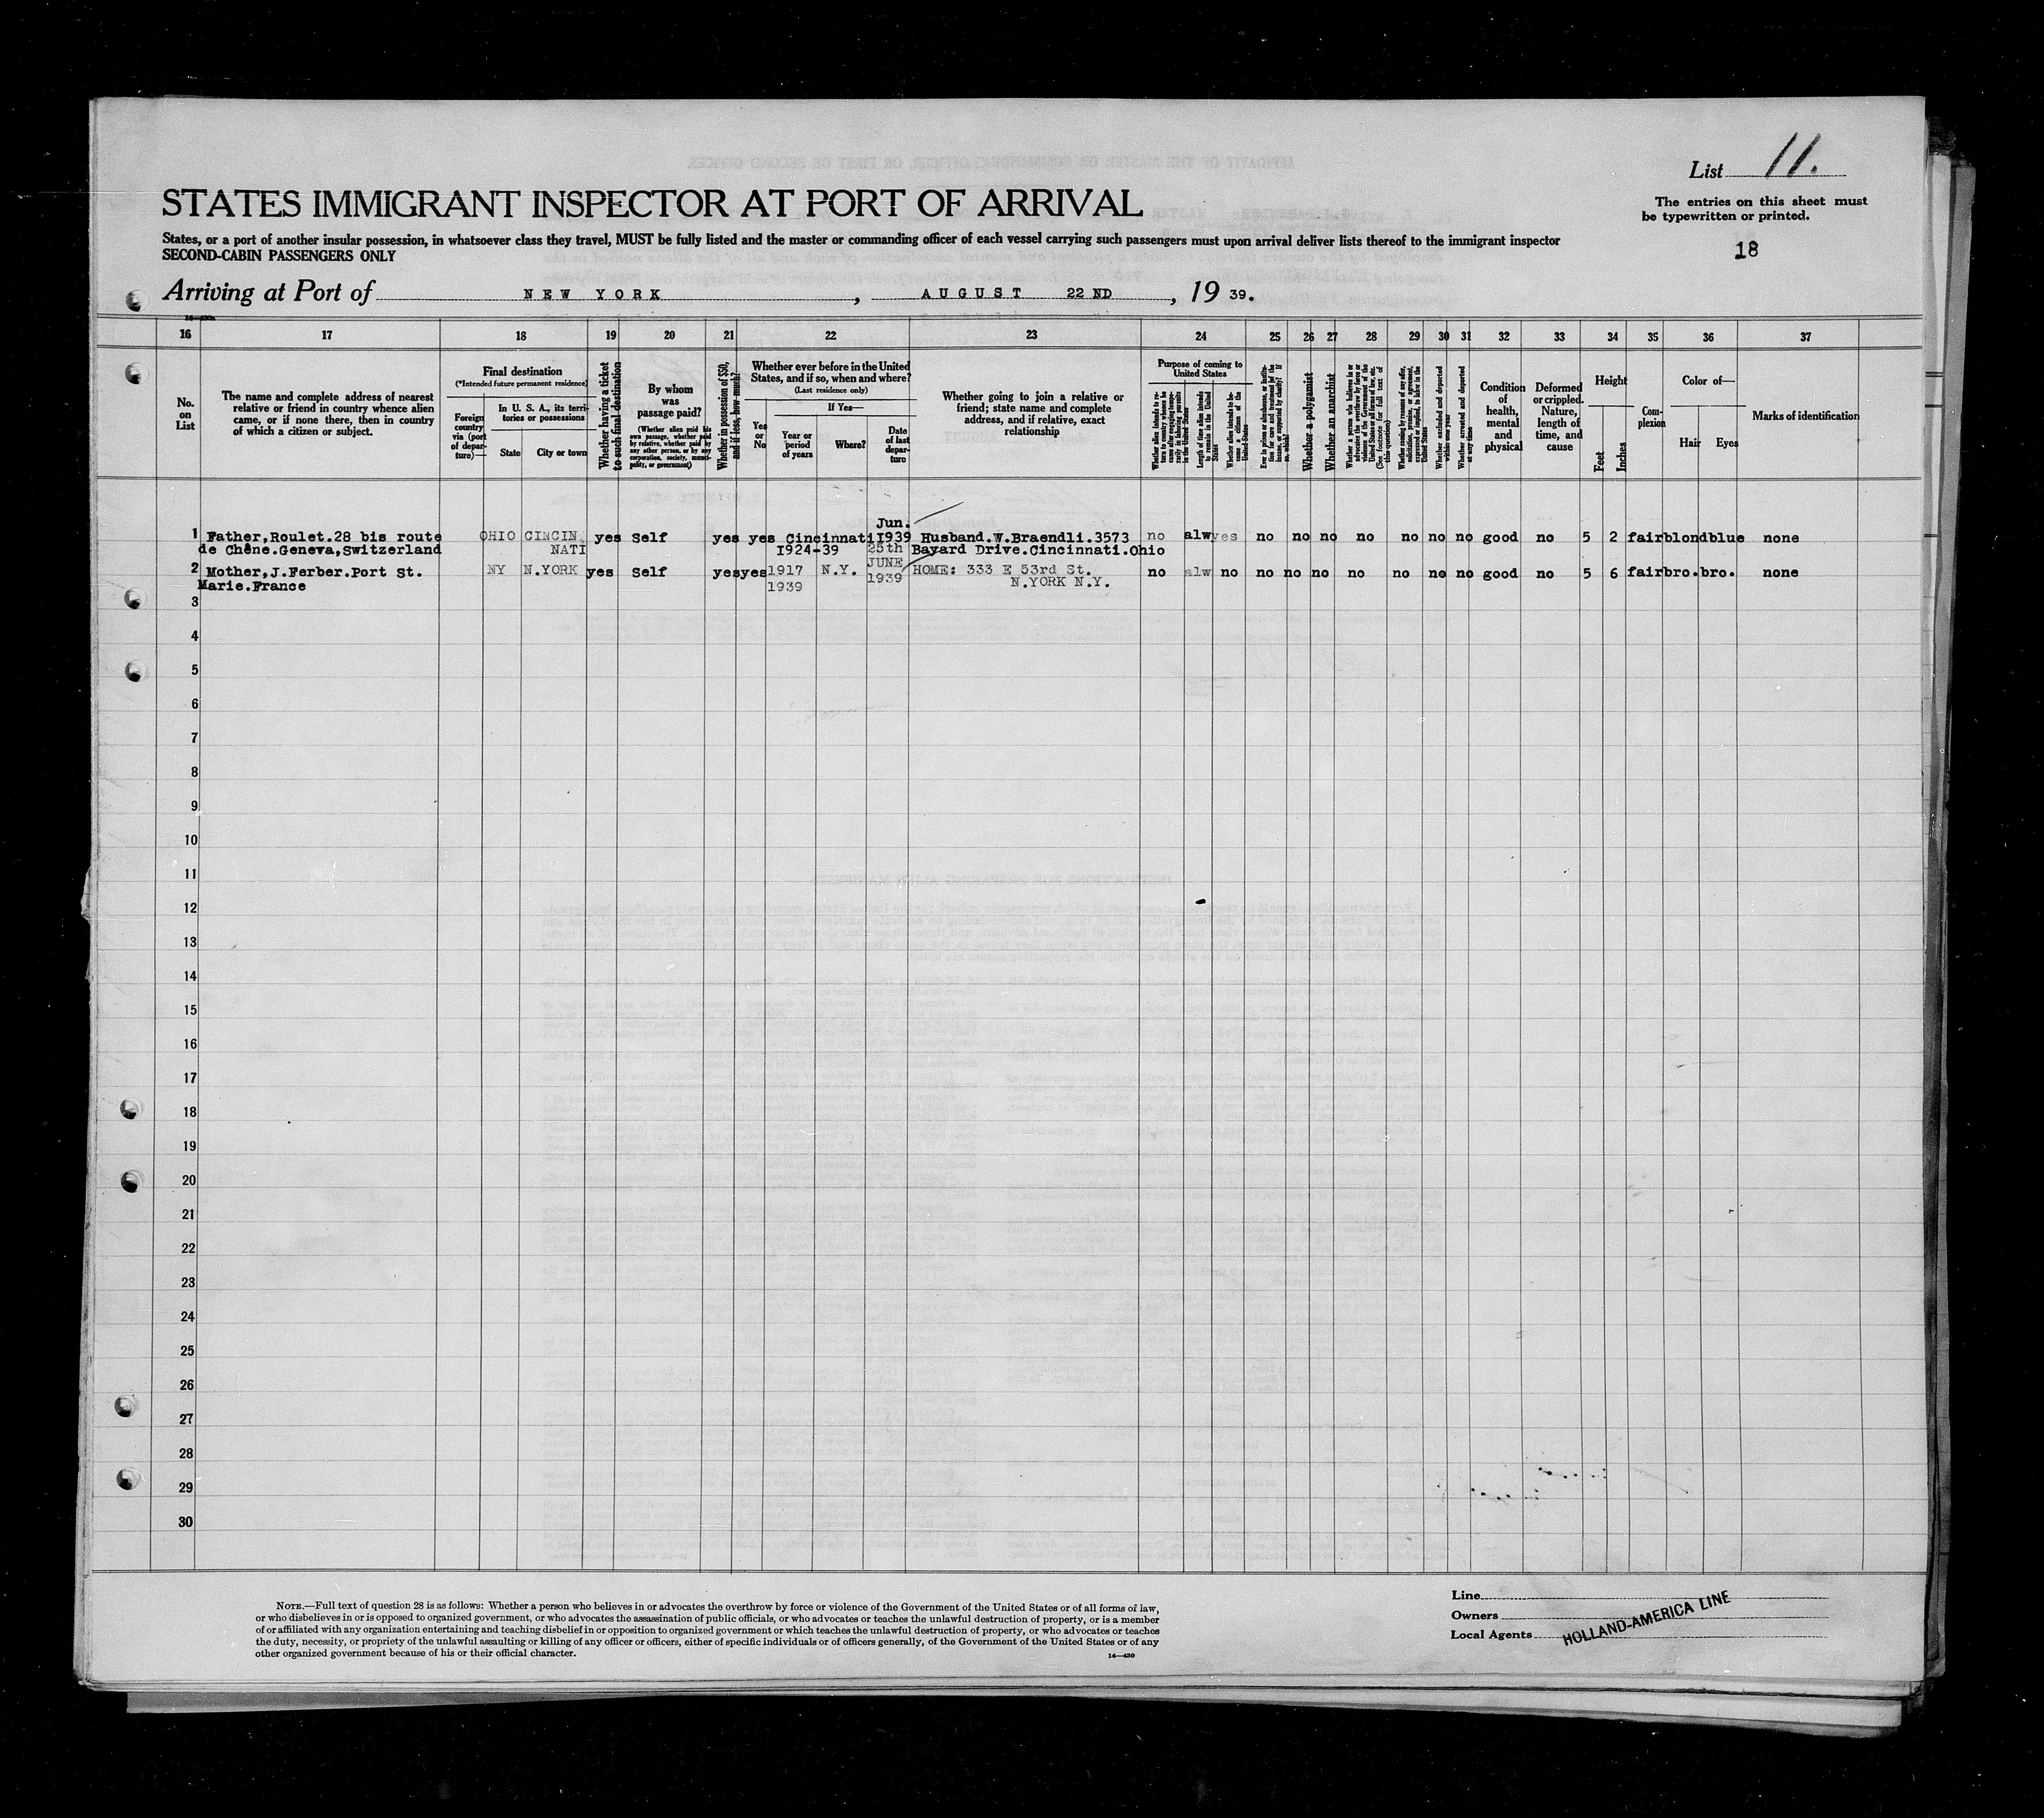 List 11.
STATES IMMIGRANT INSPECTOR AT PORT OF ARRIVAL
The entries on this sheet must
be typewritten or printed.
States, or a port of another insular possession, in whatsoever class they travel, MUST be fully listed and the master or commanding officer of each vessel carrying such passengers must upon arrival deliver lists thereof to the immigrant inspector
SECOND-CABIN PASSENGERS ONLY
18
Arriving at Port of NEW YORK, AUGUST 22ND, 19 39.
16 17 18 19 20 21 22 23 24 25 26 27 28 29 30 31 32 33 34 35 36 37
No.
on
List
The name and complete address of nearest
relative or friend in country whence alien
came, or if none there, then in country
of which a citizen or subject.
Final destination
(*Intended future permanent residence)
Foreign
country
via (port
of depar-
ture)—
In U. S. A., its terri-
tories or possessions
State City or town
Whether having a ticket
to such final destination
By whom
was
passage paid?
(Whether alien paid his
own passage, whether paid
by relative, whether paid by
any other person, or by any
corporation, society, munici-
pality, or government)
Whether in possession of $50,
and if less, how much?
Whether ever before in the United
States, and if so, when and where?
(Last residence only)
Yes
or
No
If Yes—
Year or
period
of years
Where?
Date
of last
depar-
ture
Whether going to join a relative or
friend; state name and complete
address, and if relative, exact
relationship
Purpose of coming to
United States
Whether alien intends to re-
turn to country whence he
came after engaging tempo-
rarily in laboring pursuits
in the United States
Length of time alien intends
to remain in the United
States
Whether alien intends to be-
come a citizen of the
United States
Ever in prison or almshouse, or institu-
tion for care and treatment of the
insane, or supported by charity? If
so, which?
Whether a polygamist
Whether an anarchist
Whether a person who believes in or
advocates the overthrow by force or
violence of the Government of the
United States or all forms of law, etc.
(See footnote for full text of
this question)
Whether coming by reason of any offer,
solicitation, promise, or agreement,
expressed or implied, to labor in the
United States
Whether excluded and deported
within one year
Whether arrested and deported
at any time
Condition
of
health,
mental
and
physical
Deformed
or crippled.
Nature,
length of
time, and
cause
Height
Feet Inches
Com-
plexion
Color of—
Hair Eyes
Marks of identification
Jun.
1 Father,Roulet.28 bis route OHIO CINCIN yes Self yes yes Cincinnati 1939 Husband.W.Braendli.3573 no alw yes no no no no no no no good no 5 2 fair blond blue none
de Chêne.Geneva,Switzerland NATI 1924-39 25th Bayard Drive.Cincinnati.Ohio
2 Mother,J.Ferber.Port St. NY N.YORK yes Self yes yes 1917 N.Y. JUNE HOME: 333 E 53rd St. no alw no no no no no no no no good no 5 6 fair bro. bro. none
Marie.France 1939 1939 N.YORK N.Y.
3
4
5
6
7
8
9
10
11
12
13
14
15
16
17
18
19
20
21
22
23
24
25
26
27
28
29
30
NOTE.—Full text of question 28 is as follows: Whether a person who believes in or advocates the overthrow by force or violence of the Government of the United States or of all forms of law,
or who disbelieves in or is opposed to organized government, or who advocates the assassination of public officials, or who advocates or teaches the unlawful destruction of property, or is a member
of or affiliated with any organization entertaining and teaching disbelief in or opposition to organized government or which teaches the unlawful destruction of property, or who advocates or teaches
the duty, necessity, or propriety of the unlawful assaulting or killing of any officer or officers, either of specific individuals or of officers generally, of the Government of the United States or of any
other organized government because of his or their official character.
14—430
Line
Owners
Local Agents
HOLLAND-AMERICA LINE